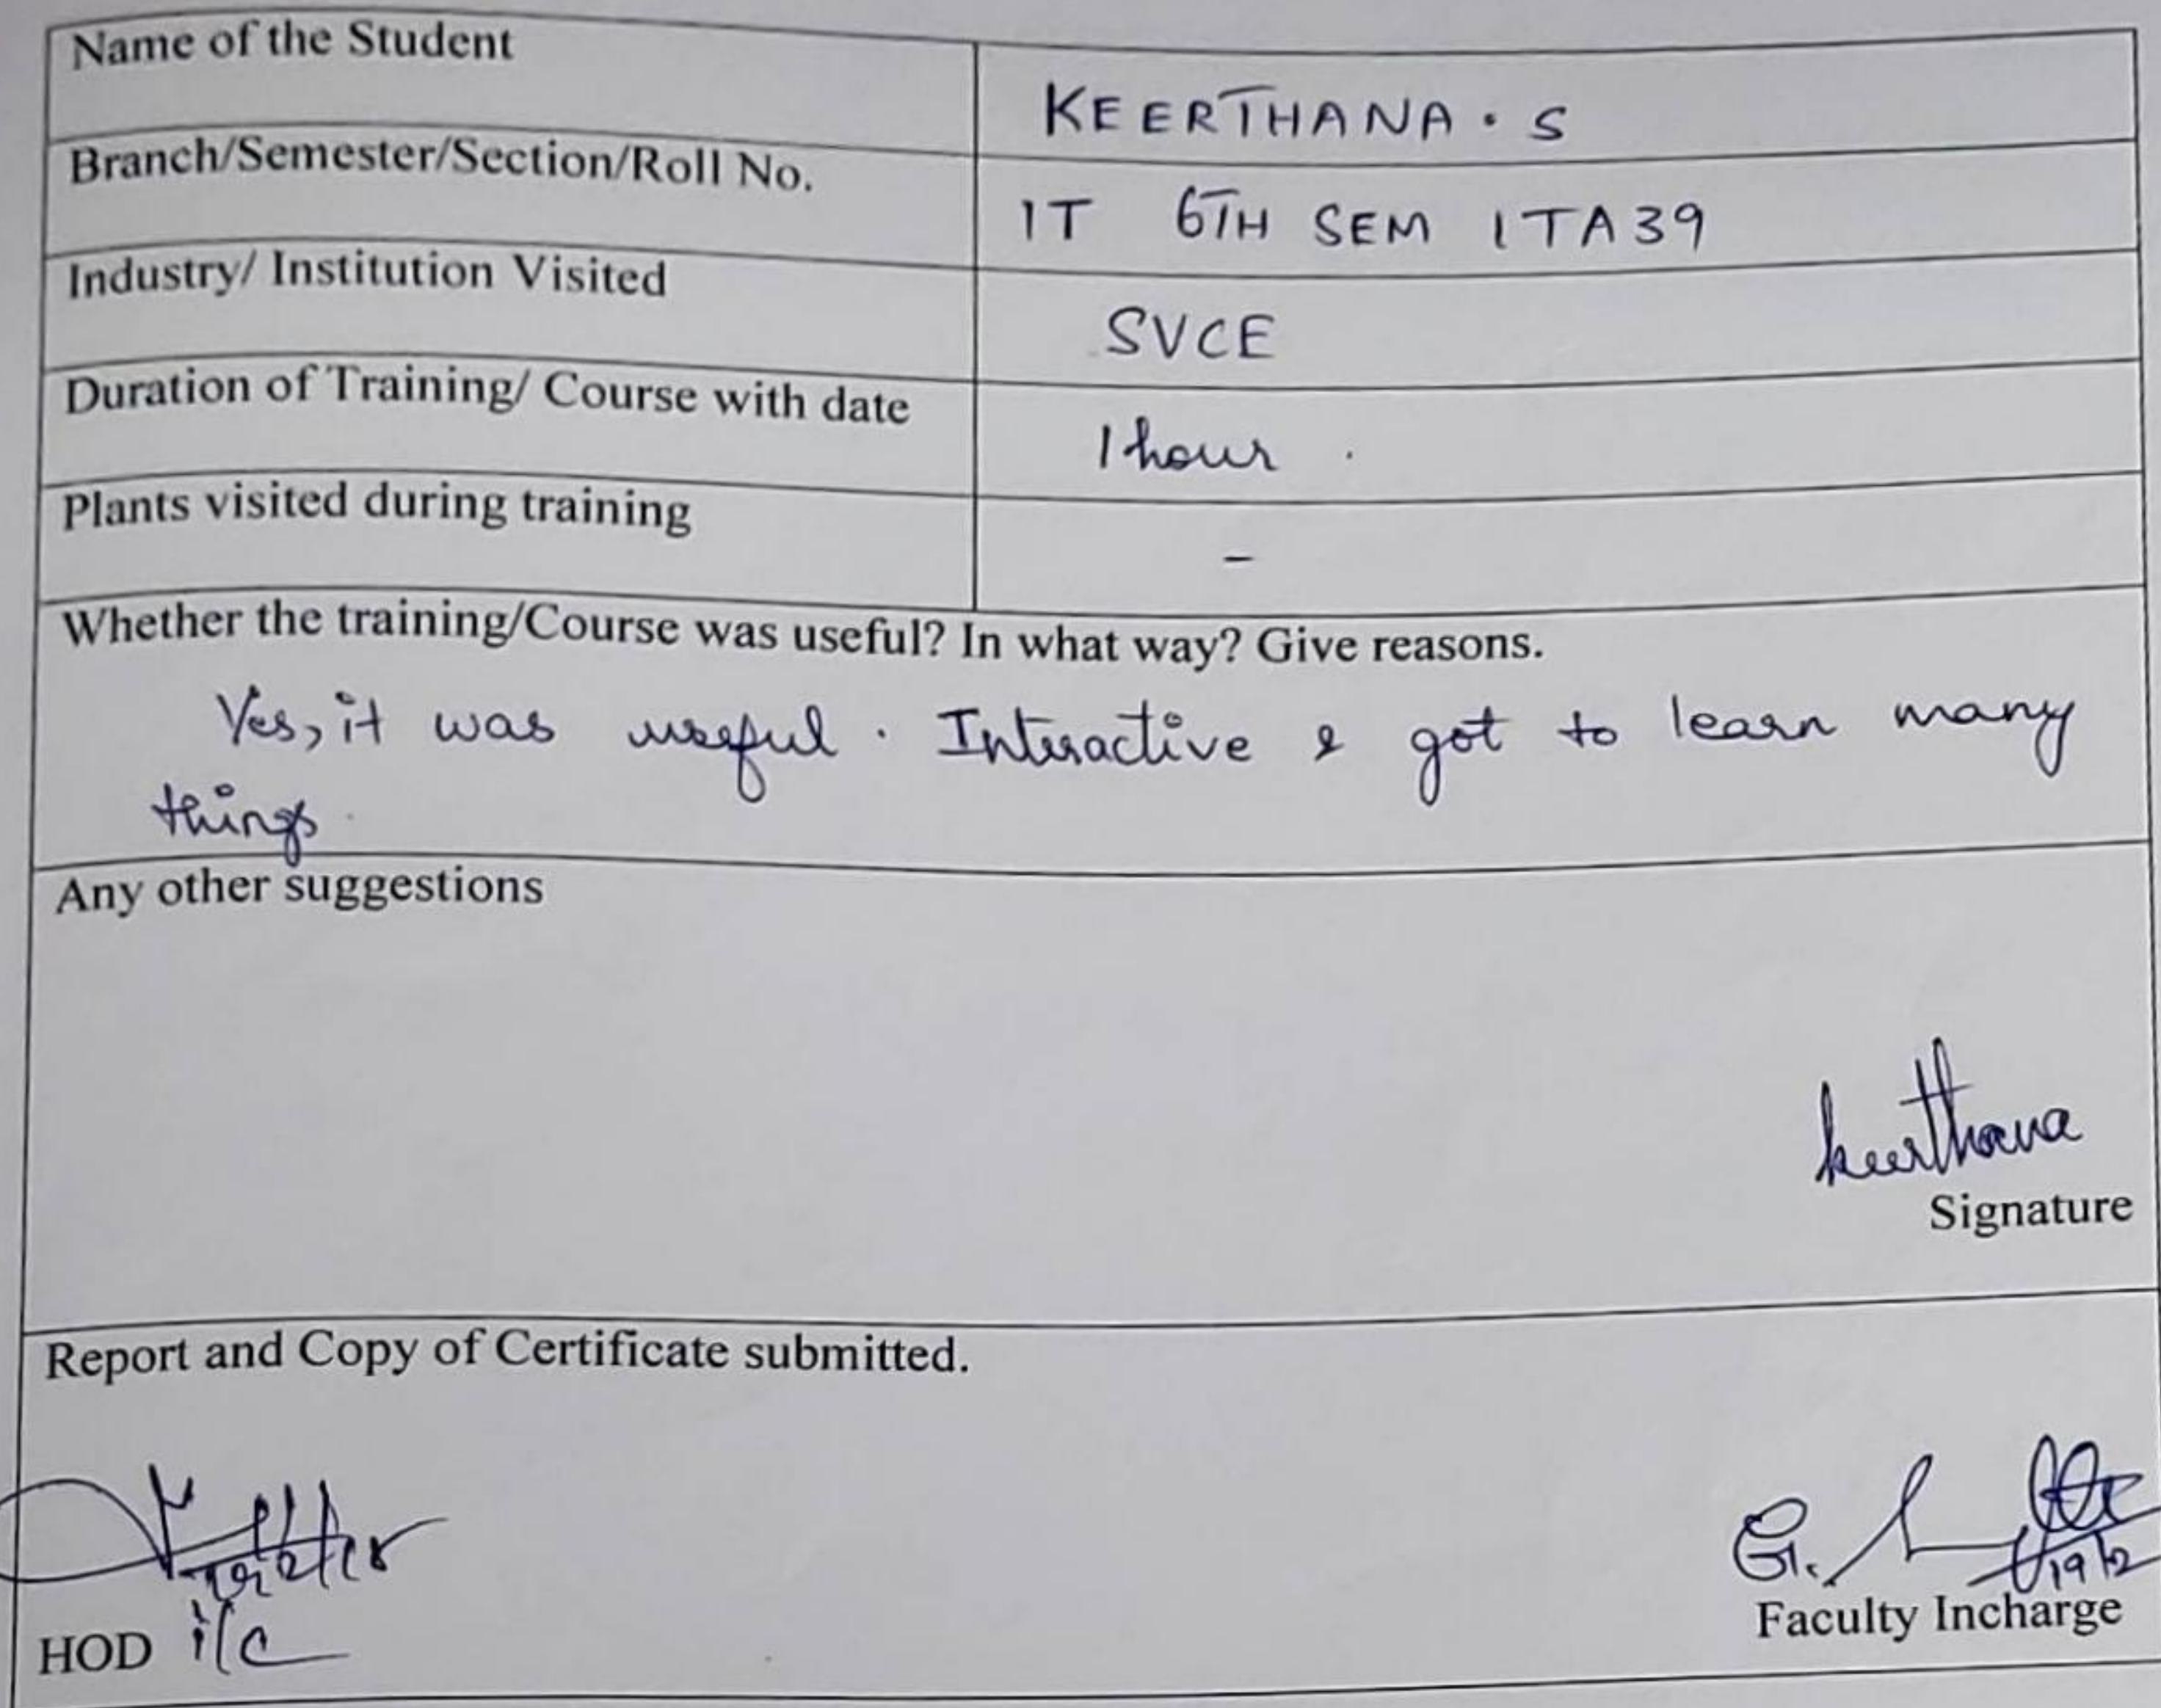 Name of the Student
KEERTHANA . S
Branch/Semester/Section/Roll No.
IT 6TH SEM ITA39
Industry/ Institution Visited
SVCE
Duration of Training/ Course with date
1 hour .
Plants visited during training
-
Whether the training/Course was useful? In what way? Give reasons.
Yes, it was useful . Interactive & got to learn many
things.
Any other suggestions
keerthana
Signature
Report and Copy of Certificate submitted.
G.
19/2
HOD i/c
Faculty Incharge